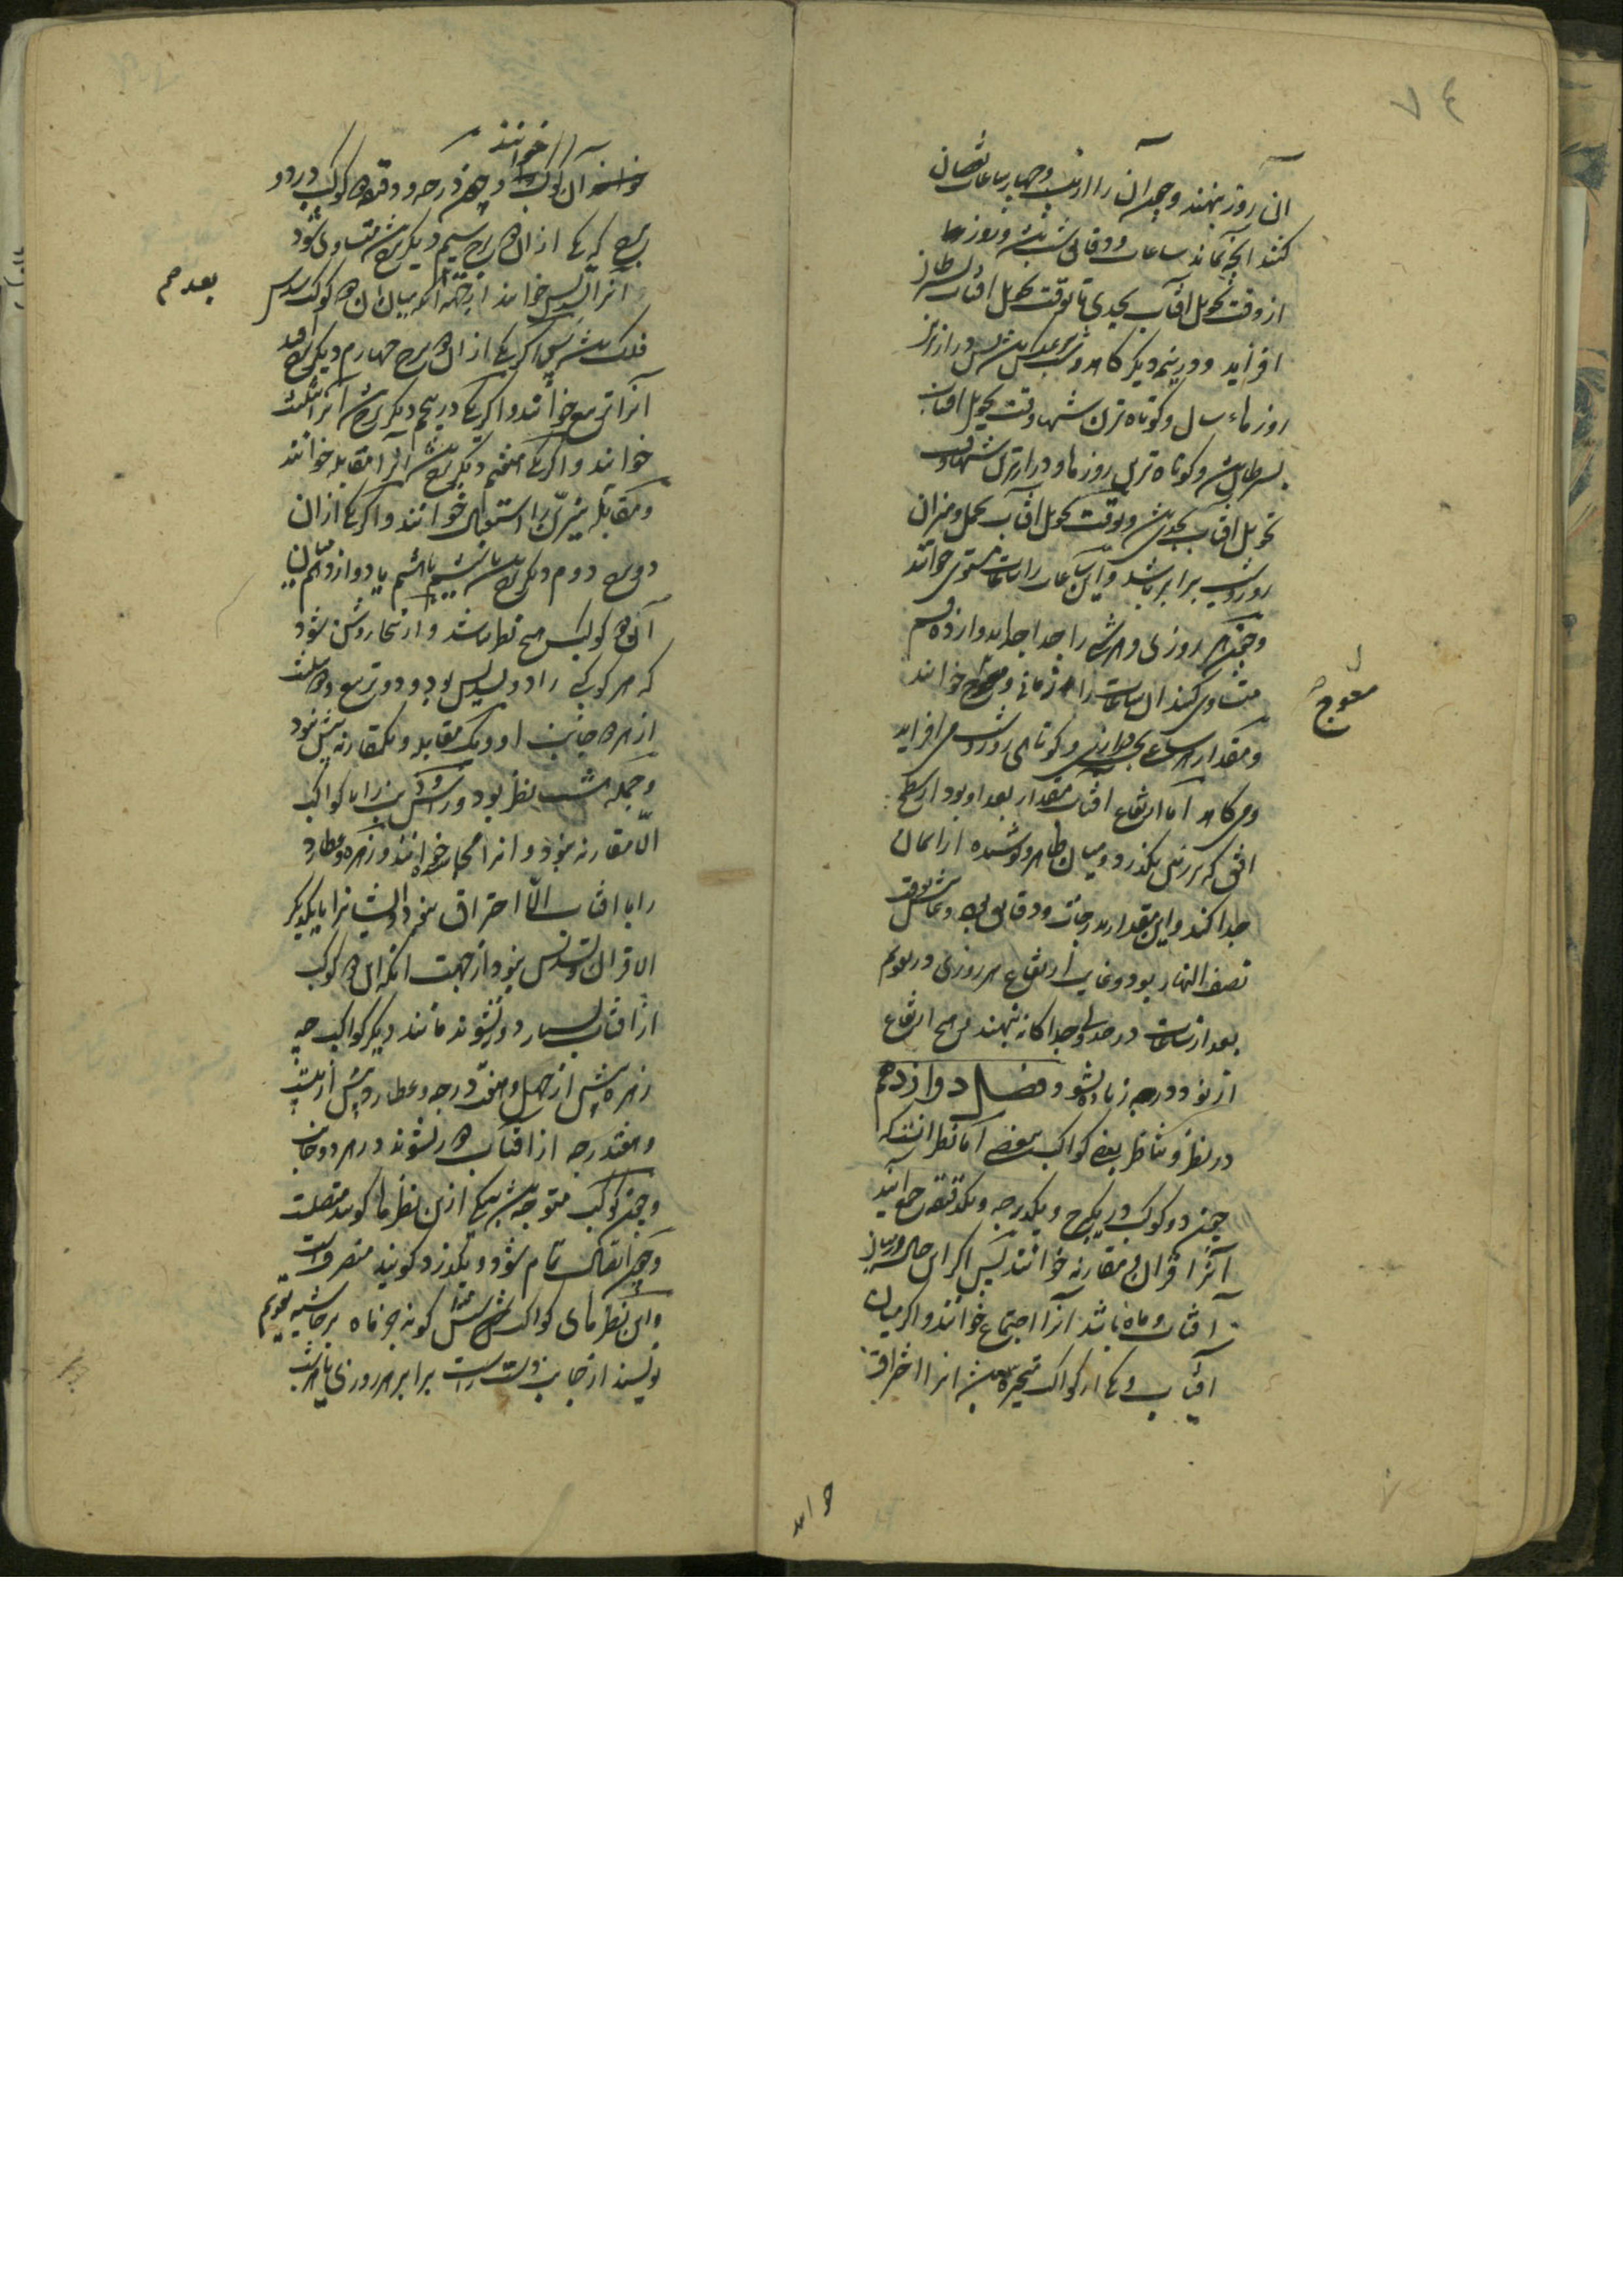 ۷۴
آن روز نهند و چون آن را از بیست و چهار ساعات نقصان
کنند آنچه بماند ساعات و دقایق شب باشد و روزها
از وقت تحویل آفتاب بجدی تا بوقت تحویل آفتاب بسرطان
افزاید و در نیمه دیگر کاهد و شب بعکس باشد پس درازترین
روزهاء سال و کوتاه ترین شبها وقت تحویل آفتاب
بسرطان باشد و کوتاه ترین روزها و درازترین شبها وقت
تحویل آفتاب بجدی باشد و بوقت تحویل آفتاب بحمل و میزان
روز و شب برابر باشد و این ساعات را ساعات مستوی خوانند
و چون هر روزی و هر شبی را جدا جدا بدوازده قسم
متساوی کنند آن ساعات را زمانی و معوج خوانند
معوج
و مقدار هر ساعتی بحسب درازی و کوتاهی روز و شب می افزاید
و می کاهد اما ارتفاع آفتاب مقدار بعد او بود از سطح
افق که بر زمین بگذرد و میان ظاهر و پوشیده از آسمان
جدا کند و این مقدار بدرجات و دقایق بود و غایتش بوقت
نصف النهار بود و غایت ارتفاع هر روزی در تقویم
بعد از ساعات در جدولی جداگانه نهند و هیچ ارتفاع
از نود درجه زیاده نشود فصل دوازدهم
در نظر و تناظر بعضی کواکب ببعضی اما نظر آنست که
چون دو کوکب در یک برج و یک درجه و یک دقیقه جمع آیند
آنرا قران و مقارنه خوانند پس اگر این حال در میان
آفتاب و ماه باشد آنرا اجتماع خوانند و اگر میان
آفتاب و یکی از کواکب متحیره باشد آنرا احتراق
خوانند
خوانند
خوانند آن کوکب را و چون درجه و دقیقه دو کوکب در دو
برج که یکی از آن دو برج سیم دیگر باشد متساوی شود
آنرا تسدیس خوانند از جهت آنکه میان آن دو کوکب سدس
بعدهم
فلک باشد پس اگر یکی از آن دو برج چهارم دیگر بود
آنرا تربیع خوانند و اگر یکی در پنجم دیگر باشد آنرا تثلیث
خوانند و اگر یکی هفتم دیگر باشد آنرا مقابله خوانند
و مقابله نیرین را استقبال خوانند و اگر یکی از آن
دو برج دوم دیگر باشد یا ششم یا هشتم یا دوازدهم میان
آن دو کوکب هیچ نظر نباشد و از اینجا روشن شود
که هر کوکبی را دو تسدیس بود و دو تربیع و دو تثلیث
از هر دو جانب او و یک مقابله و یک مقارنه بیش نبود
و جمله هشت نظر بود و راس و ذنب را با کواکب
الا مقارنه نبود و آنرا مجاسده خوانند و زهره و عطارد
را با آفتاب الا احتراق نبود و ایشانرا با یکدیگر
الا قران و تسدیس نبود از جهت آنکه این دو کوکب
از آفتاب بسیار دور نشوند مانند دیگر کواکب چه
زهره بیش از چهل و هفت درجه و عطارد بیش از بیست
و هفت درجه از آفتاب دور نشوند در هر دو جانب
و چون کوکب متوجه باشد بیکی ازین نظرها گویند متصلست
و چون اتصال تمام شود و بگذرد گویند منصرفست
و این نظرهای کواکب شش گونه جز ماه بر حاشیه تقویم
نویسند از جانب دست راست برابر هر روزی که باشد